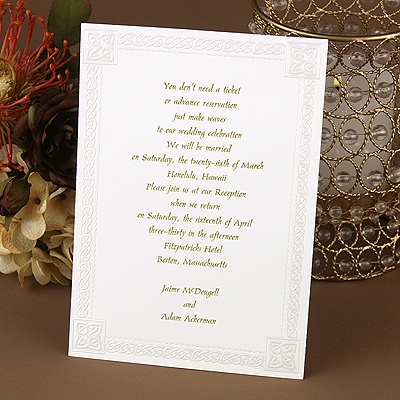 You don't need a ticket
or advance reservation
just make waves
to our wedding celebration
We will be married
on Saturday, the twenty-sixth of March
Honolulu, Hawaii
Please join us at our Reception
when we return
on Saturday, the sixteenth of April
three-thirty in the afternoon
Fitzpatricks Hotel
Boston, Massachusetts
Jaime McDougell
and
Adam Ackerman